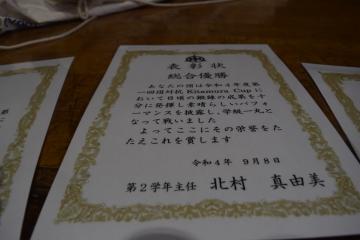 表彰状
総合優勝
あなたの団は令和4年度第
一回団対抗 Kitamura Cup に
おいて日頃の鍛錬の成果を十
分に発揮し素晴らしいパフォ
ーマンスを披露し、学級一丸と
なって戦いました
よってここにその栄誉をた
たえこれを賞します
令和4年 9月8日
第2学年主任 北村 真由美